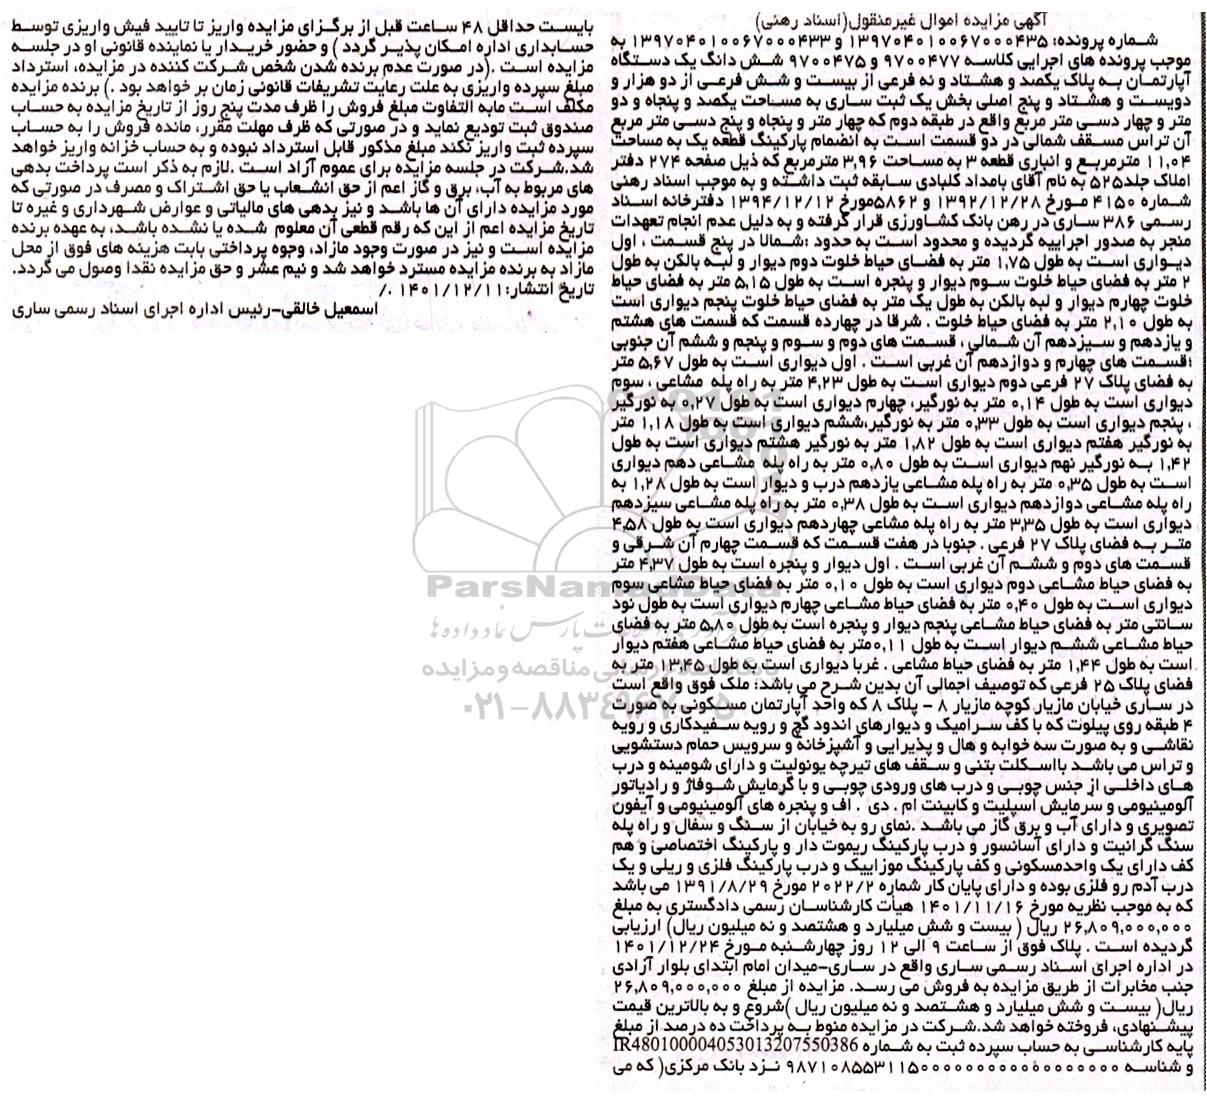 آگهی مزایده اموال غیرمنقول(اسناد رهنی)
شماره پرونده: ۱۳۹۷۰۴۰۱۰۰۶۷۰۰۰۴۳۵ و ۱۳۹۷۰۴۰۱۰۰۶۷۰۰۰۴۳۳ به
موجب پرونده های اجرایی کلاسه ۹۷۰۰۴۷۷ و ۹۷۰۰۴۷۵ شش دانگ یک دستگاه
آپارتمان به پلاک یکصد و هشتاد و نه فرعی از بیست و شش فرعی از دو هزار و
دویست و هشتاد و پنج اصلی بخش یک ثبت ساری به مساحت یکصد و پنجاه و دو
متر و چهار دسی متر مربع واقع در طبقه دوم که چهار متر و پنجاه و پنج دسی متر مربع
آن تراس مسقف شمالی در دو قسمت است به انضمام پارکینگ قطعه یک به مساحت
۱۱,۰۴ مترمربع و انباری قطعه ۳ به مساحت ۳,۹۶ مترمربع که ذیل صفحه ۲۷۴ دفتر
املاک جلد۵۲۵ به نام آقای بامداد کلبادی سابقه ثبت داشته و به موجب اسناد رهنی
شماره ۴۱۵۰ مورخ ۱۳۹۲/۱۲/۲۸ و ۵۸۶۲مورخ ۱۳۹۴/۱۲/۱۲ دفترخانه اسناد
رسمی ۳۸۶ ساری در رهن بانک کشاورزی قرار گرفته و به دلیل عدم انجام تعهدات
منجر به صدور اجراییه گردیده و محدود است به حدود :شمالا در پنج قسمت ، اول
دیواری است به طول ۱,۷۵ متر به فضای حیاط خلوت دوم دیوار و لبه بالکن به طول
۲ متر به فضای حیاط خلوت سوم دیوار و پنجره است به طول ۵,۱۵ متر به فضای حیاط
خلوت چهارم دیوار و لبه بالکن به طول یک متر به فضای حیاط خلوت پنجم دیواری است
به طول ۲,۱۰ متر به فضای حیاط خلوت . شرقا در چهارده قسمت که قسمت های هشتم
و یازدهم و سیزدهم آن شمالی ، قسمت های دوم و سوم و پنجم و ششم آن جنوبی
؛قسمت های چهارم و دوازدهم آن غربی است . اول دیواری است به طول ۵,۶۷ متر
به فضای پلاک ۲۷ فرعی دوم دیواری است به طول ۴,۲۳ متر به راه پله مشاعی ، سوم
دیواری است به طول ۰,۱۴ متر به نورگیر، چهارم دیواری است به طول ۰,۲۷ به نورگیر
، پنجم دیواری است به طول ۰,۳۳ متر به نورگیر،ششم دیواری است به طول ۱,۱۸ متر
به نورگیر هفتم دیواری است به طول ۱,۸۲ متر به نورگیر هشتم دیواری است به طول
۱,۴۲ به نورگیر نهم دیواری است به طول ۰,۸۰ متر به راه پله مشاعی دهم دیواری
است به طول ۰,۳۵ متر به راه پله مشاعی یازدهم درب و دیوار است به طول ۱,۲۸ به
راه پله مشاعی دوازدهم دیواری است به طول ۰,۳۸ متر به راه پله مشاعی سیزدهم
دیواری است به طول ۳,۳۵ متر به راه پله مشاعی چهاردهم دیواری است به طول ۴,۵۸
متر به فضای پلاک ۲۷ فرعی . جنوبا در هفت قسمت که قسمت چهارم آن شرقی و
قسمت های دوم و ششم آن غربی است . اول دیوار و پنجره است به طول ۴,۳۷ متر
به فضای حیاط مشاعی دوم دیواری است به طول ۰,۱۰ متر به فضای حیاط مشاعی سوم
دیواری است به طول ۰,۴۰ متر به فضای حیاط مشاعی چهارم دیواری است به طول نود
سانتی متر به فضای حیاط مشاعی پنجم دیوار و پنجره است به طول ۵,۸۰ متر به فضای
حیاط مشاعی ششم دیوار است به طول ۰,۱۱متر به فضای حیاط مشاعی هفتم دیوار
است به طول ۱,۴۴ متر به فضای حیاط مشاعی . غربا دیواری است به طول ۱۳,۴۵ متر به
فضای پلاک ۲۵ فرعی که توصیف اجمالی آن بدین شرح می باشد: ملک فوق واقع است
در ساری خیابان مازیار کوچه مازیار ۸ - پلاک ۸ که واحد آپارتمان مسکونی به صورت
۴ طبقه روی پیلوت که با کف سرامیک و دیوارهای اندود گچ و رویه سفیدکاری و رویه
نقاشی و به صورت سه خوابه و هال و پذیرایی و آشپزخانه و سرویس حمام دستشویی
و تراس می باشد بااسکلت بتنی و سقف های تیرچه یونولیت و دارای شومینه و درب
های داخلی از جنس چوبی و درب های ورودی چوبی و با گرمایش شوفاژ و رادیاتور
آلومینیومی و سرمایش اسپلیت و کابینت ام . دی . اف و پنجره های آلومینیومی و آیفون
تصویری و دارای آب و برق گاز می باشد .نمای رو به خیابان از سنگ و سفال و راه پله
سنگ گرانیت و دارای آسانسور و درب پارکینگ ریموت دار و پارکینگ اختصاصی و هم
کف دارای یک واحدمسکونی و کف پارکینگ موزاییک و درب پارکینگ فلزی و ریلی و یک
درب آدم رو فلزی بوده و دارای پایان کار شماره ۲۰۲۲/۲ مورخ ۱۳۹۱/۸/۲۹ می باشد
که به موجب نظریه مورخ ۱۴۰۱/۱۱/۱۶ هیأت کارشناسان رسمی دادگستری به مبلغ
۲۶,۸۰۹,۰۰۰,۰۰۰ ریال ( بیست و شش میلیارد و هشتصد و نه میلیون ریال) ارزیابی
گردیده است . پلاک فوق از ساعت ۹ الی ۱۲ روز چهارشنبه مورخ ۱۴۰۱/۱۲/۲۴
در اداره اجرای اسناد رسمی ساری واقع در ساری-میدان امام ابتدای بلوار آزادی
جنب مخابرات از طریق مزایده به فروش می رسد. مزایده از مبلغ ۲۶,۸۰۹,۰۰۰,۰۰۰
ریال( بیست و شش میلیارد و هشتصد و نه میلیون ریال )شروع و به بالاترین قیمت
پیشنهادی، فروخته خواهد شد.شرکت در مزایده منوط به پرداخت ده درصد از مبلغ
پایه کارشناسی به حساب سپرده ثبت به شماره IR480100004053013207550386
و شناسه نزد بانک مرکزی( که می
بایست حداقل ۴۸ ساعت قبل از برگزای مزایده واریز تا تایید فیش واریزی توسط
حسابداری اداره امکان پذیر گردد ) و حضور خریدار یا نماینده قانونی او در جلسه
مزایده است .(در صورت عدم برنده شدن شخص شرکت کننده در مزایده، استرداد
مبلغ سپرده واریزی به علت رعایت تشریفات قانونی زمان بر خواهد بود .) برنده مزایده
مکلف است مابه التفاوت مبلغ فروش را ظرف مدت پنج روز از تاریخ مزایده به حساب
صندوق ثبت تودیع نماید و در صورتی که ظرف مهلت مقرر، مانده فروش را به حساب
سپرده ثبت واریز نکند مبلغ مذکور قابل استرداد نبوده و به حساب خزانه واریز خواهد
شد.شرکت در جلسه مزایده برای عموم آزاد است .لازم به ذکر است پرداخت بدهی
های مربوط به آب، برق و گاز اعم از حق انشعاب یا حق اشتراک و مصرف در صورتی که
مورد مزایده دارای آن ها باشد و نیز بدهی های مالیاتی و عوارض شهرداری و غیره تا
تاریخ مزایده اعم از این که رقم قطعی آن معلوم شده یا نشده باشد، به عهده برنده
مزایده است و نیز در صورت وجود مازاد، وجوه پرداختی بابت هزینه های فوق از محل
مازاد به برنده مزایده مسترد خواهد شد و نیم عشر و حق مزایده نقدا وصول می گردد.
تاریخ انتشار: ۱۴۰۱/۱۲/۱۱ ./
اسمعیل خالقی-رئیس اداره اجرای اسناد رسمی ساری
ParsNamadData